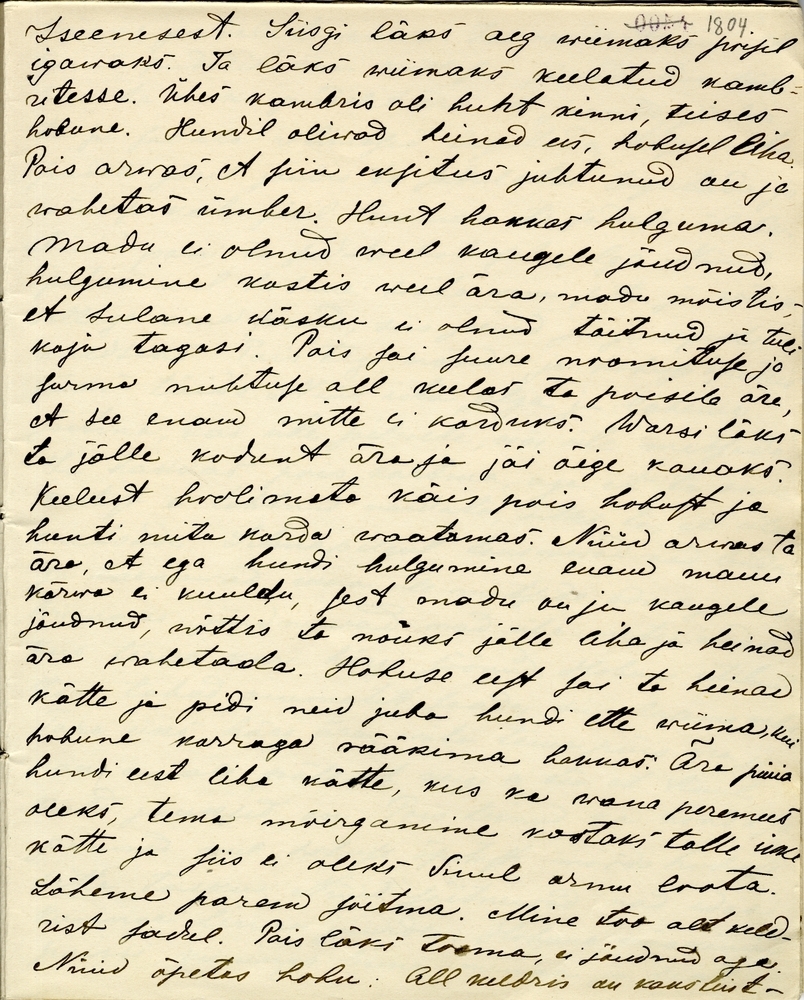 1804.
Iseenesest. Siisgi läks aeg wiimaks poisil
igawaks. Ta läks wiimaks keelatud kamb-
ritesse. Ühes kambris oli hunt kinni, teises
hobune. Hundil oliwad heinad ees, hobusel liha.
Pois arwas, et siin eksitus juhtunud on ja
wahetas ümber. Hunt hakkas hulguma.
Madu ei olnud weel kaugele jõudnud,
hulgumine kostis weel ära, madu mõistis,
et sulane käsku ei olnud täitnud ja tuli
koju tagasi. Pois sai suure noomituse ja
surma nuhtluse all keelas ta poisile ära,
et see enam mitte ei korduks. Warsi läks
ta jälle kodunt ära ja jäi õige kauaks.
Keelust hoolimata käis pois hobust ja
hunti mitu korda waatamas. Nüüd arwas ta
ära, et ega hundi hulgumine enam mauu
kõrwa ei kuuldu, sest madu on ju kaugele
jõudnud, wõttis ta nõuks jälle liha ja heinad
ära wahetada. Hobuse eest sai ta heinad
kätte ja pidi neid juba hundi ette wiima, kui
hobune korraga rääkima hakkas: Ära püüa
hundi eest liha kätte, kus ka wana peremees
oleks, tema möirgamine kostaks talle ikke
kätte ja siis ei oleks Sinul armu loota.
Läheme parem sõitma. Mine too alt keld-
rist sadul. Pois läks tooma, ei jõudnud aga.
Nüüd õpetas hobu: All keldris on kaks kist-